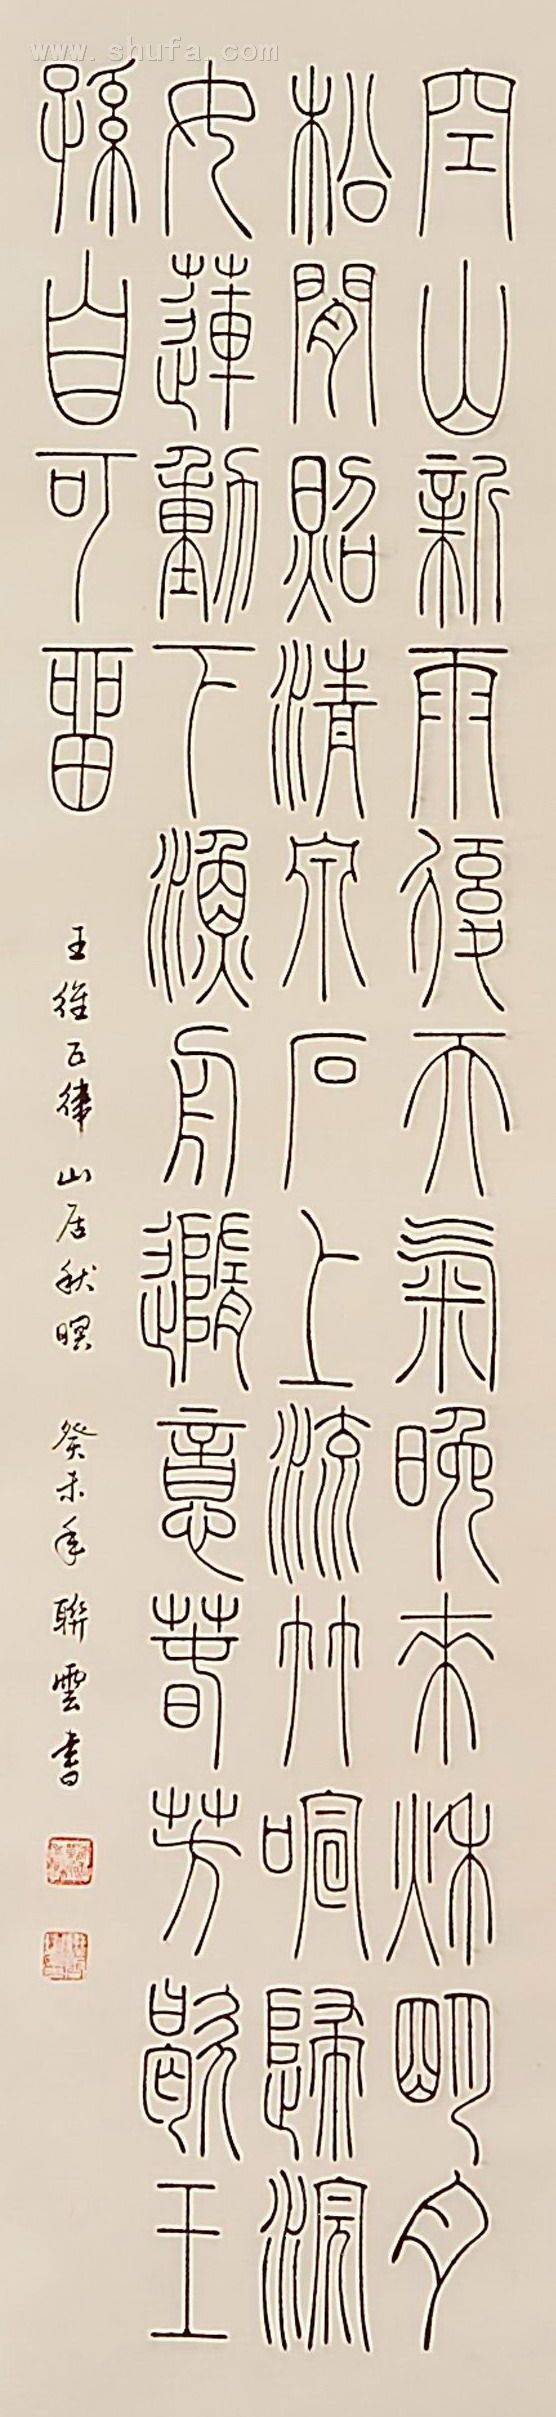 空山新雨後天气晚来秌明月
松閒照清泉石上流竹喧歸浣
女蓮動下漁舟隨意萅芳歇王
孫自可畱
王維五律山居秋暝 癸未年聯雲書
www.shufa.com